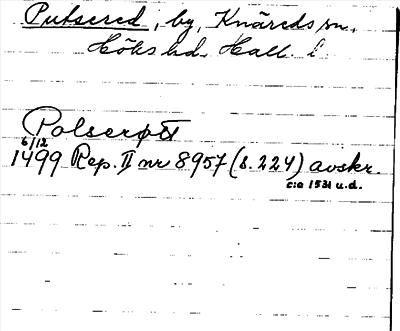 Putsered, by, Knäreds sn.
Höks hd. Hall. l.
Polserøtt
6/12
1499 Rep. II nr 8957 (s. 224) avskr.
c:a 1531 u.d.